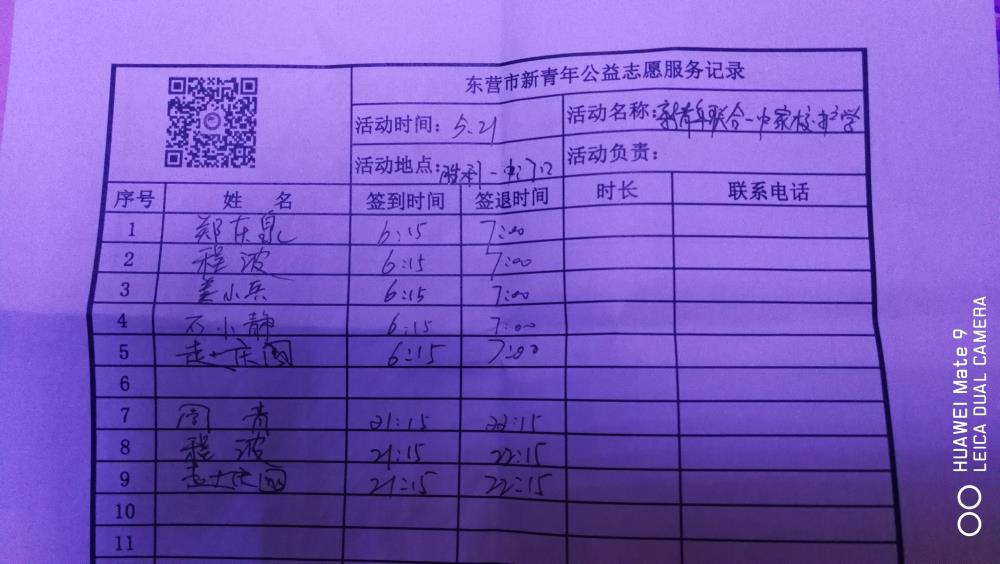 东营市新青年公益志愿服务记录
活动时间：5.21 活动名称：新青年联合一中家校护学
活动地点：胜利一中门口 活动负责：
序号 姓 名 签到时间 签退时间 时长 联系电话
1 郑东泉 6:15 7:00
2 程波 6:15 7:00
3 姜小兵 6:15 7:00
4 石小静 6:15 7:00
5 6:15 7:00
6
7 周青 21:15 22:15
8 程波 21:15 22:15
9 21:15 22:15
10
11
HUAWEI Mate 9
LEICA DUAL CAMERA